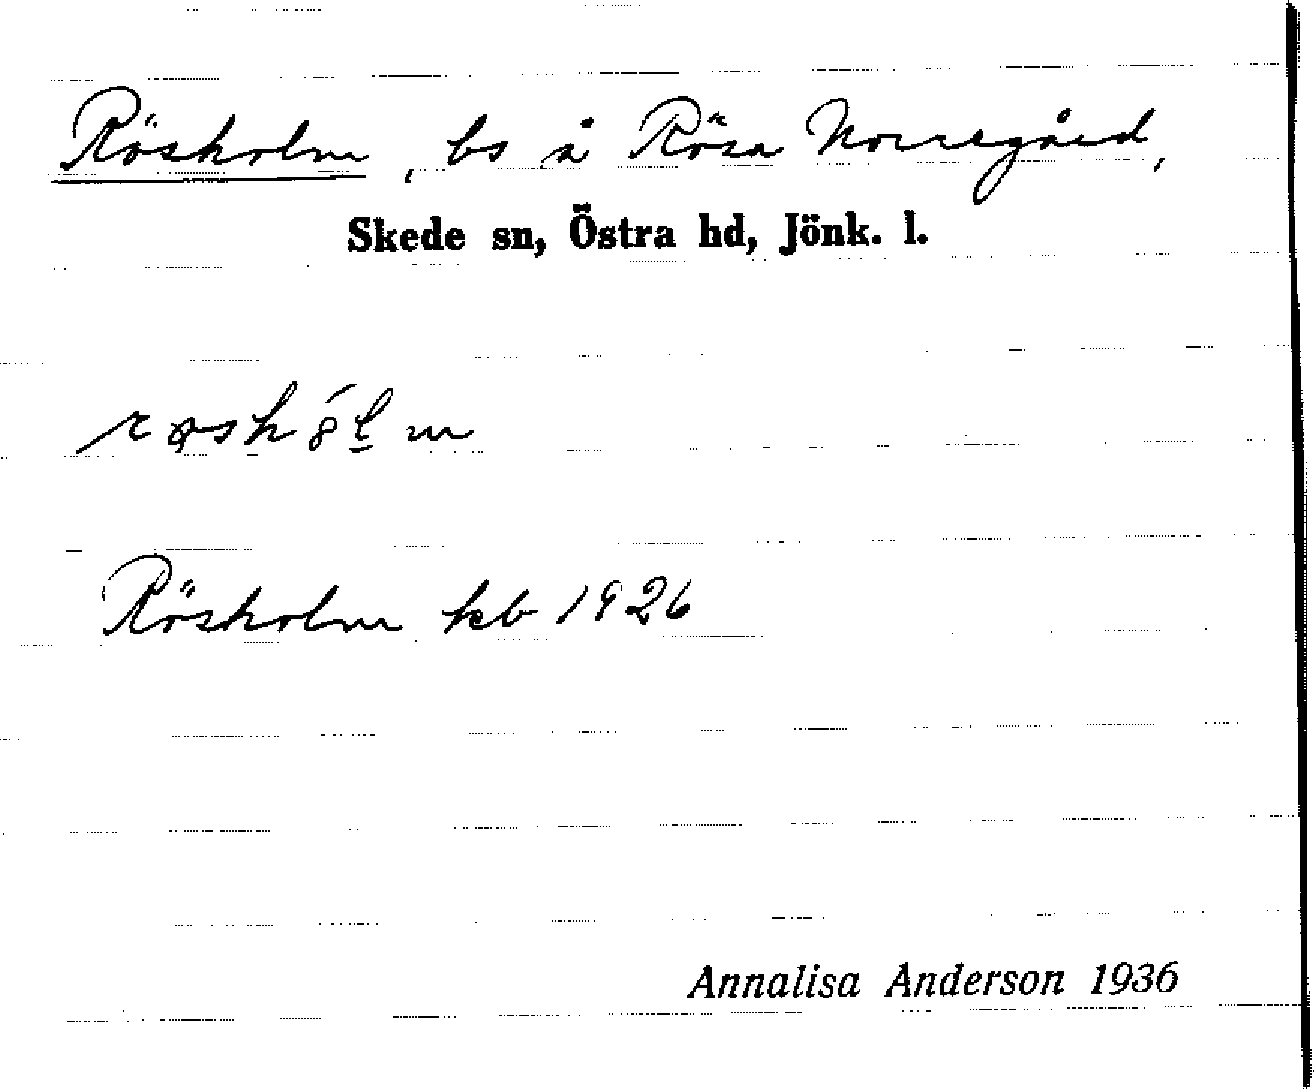 Rösholm, bs å Rösa Norregård,
Skede sn, Östra hd, Jönk. l.
Rösholm kb 1926
Annalisa Anderson 1936